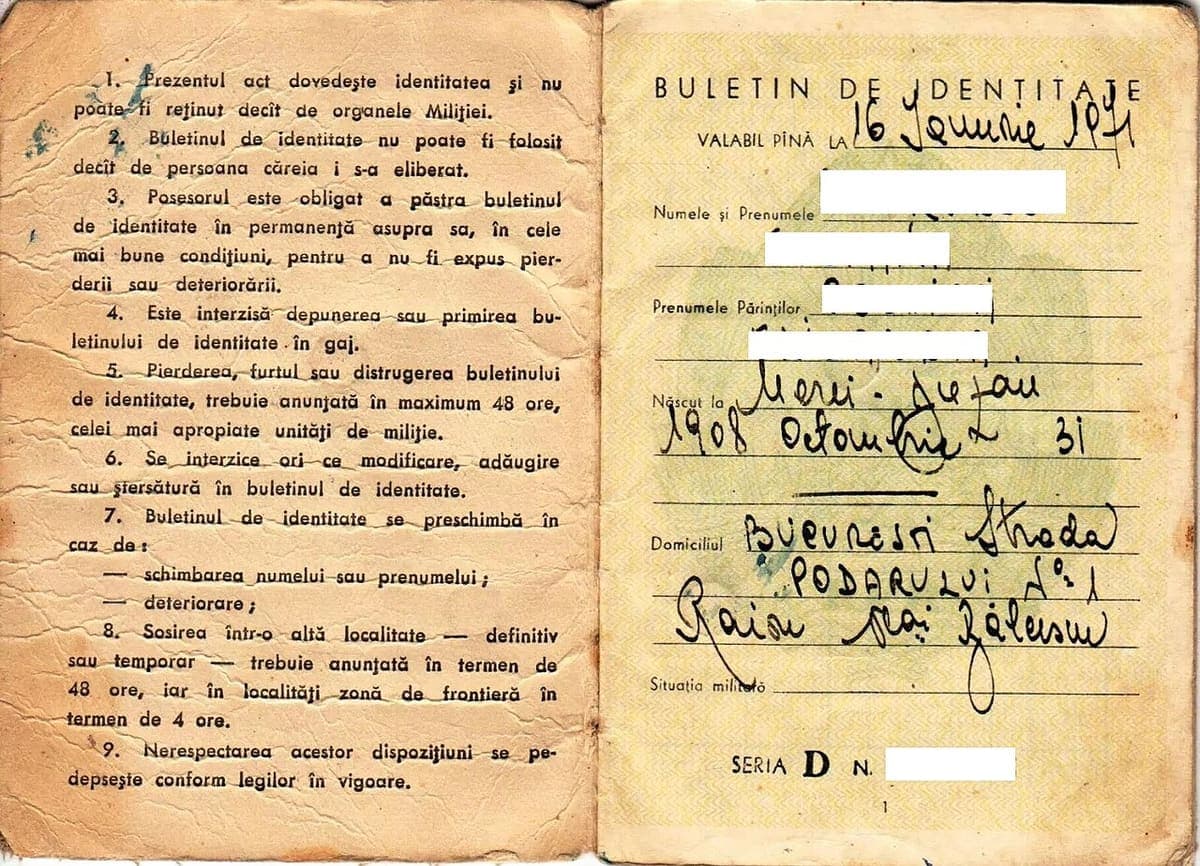 1. Prezentul act dovedește identitatea și nu
poate fi reținut decît de organele Miliției.
2. Buletinul de identitate nu poate fi folosit
decît de persoana căreia i s-a eliberat.
3. Posesorul este obligat a păstra buletinul
de identitate în permanență asupra sa, în cele
mai bune condițiuni, pentru a nu fi expus pier-
derii sau deteriorării.
4. Este interzisă depunerea sau primirea bu-
letinului de identitate în gaj.
5. Pierderea, furtul sau distrugerea buletinului
de identitate, trebuie anunțată în maximum 48 ore,
celei mai apropiate unități de miliție.
6. Se interzice ori ce modificare, adăugire
sau ștersătură în buletinul de identitate.
7. Buletinul de identitate se preschimbă în
caz de:
— schimbarea numelui sau prenumelui;
— deteriorare;
8. Sosirea într-o altă localitate — definitiv
sau temporar — trebuie anunțată în termen de
48 ore, iar în localități zonă de frontieră în
termen de 4 ore.
9. Nerespectarea acestor dispozițiuni se pe-
depsește conform legilor în vigoare.
BULETIN DE IDENTITATE
VALABIL PÎNĂ LA 16 Ianuarie 1971
Numele și Prenumele
Prenumele Părinților
Născut la
1908 Octombrie 31
Domiciliul BUCUREȘTI Strada
PODARULUI No 1
Raion N. Bălcescu
Situația militară
SERIA D N.
1